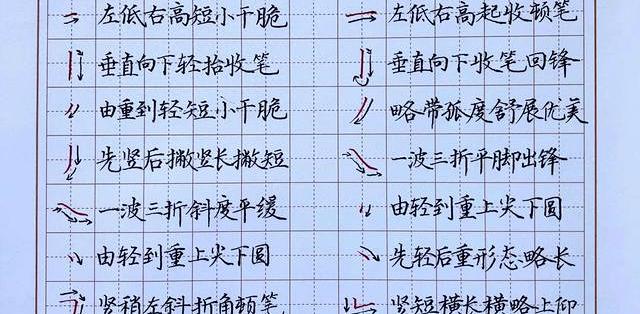 左低右高短小干脆
左低右高起收顿笔
垂直向下轻抬收笔
垂直向下收笔回锋
由重到轻短小干脆
略带弧度舒展优美
先竖后撇竖长撇短
一波三折平脚出锋
一波三折斜度平缓
由轻到重上尖下圆
由轻到重上尖下圆
先轻后重形态略长
竖稍左斜折角顿笔
竖短横长横略上仰